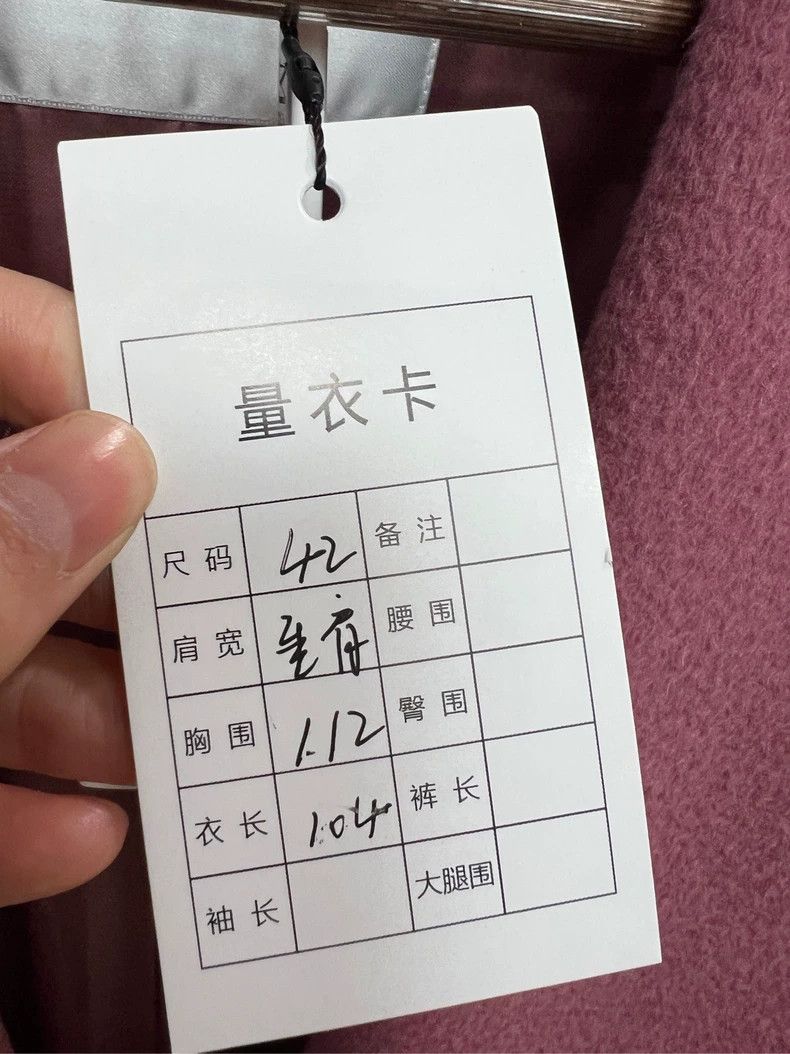 量衣卡
尺码 42 备注
肩宽 垂肩 腰围
胸围 1.12 臀围
衣长 1.04 裤长
袖长 大腿围